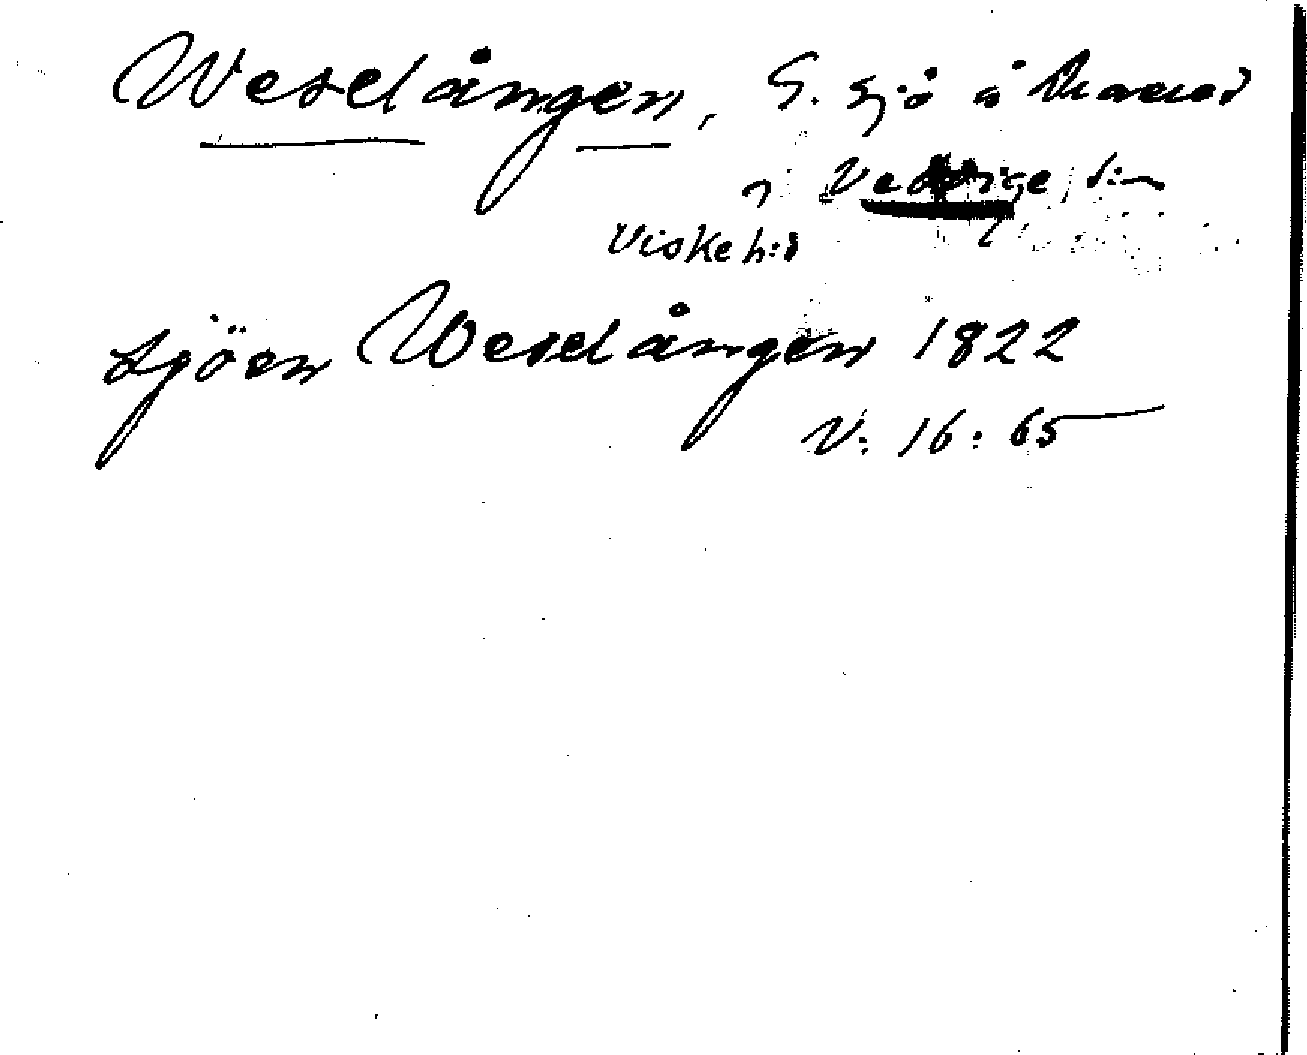 Weselången, S. sjö å
i Veddige s:n
Viske h:d
sjöen Weselången 1822
V: 16: 65